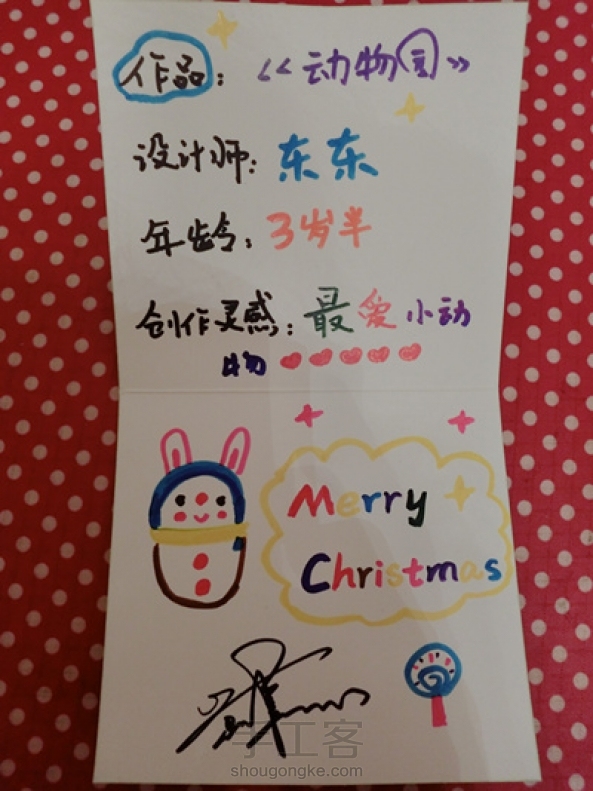 作品：《动物园》
设计师：东东
年龄：3岁半
创作灵感：最爱小动
物
Merry
Christmas
手工客
shougongke.com